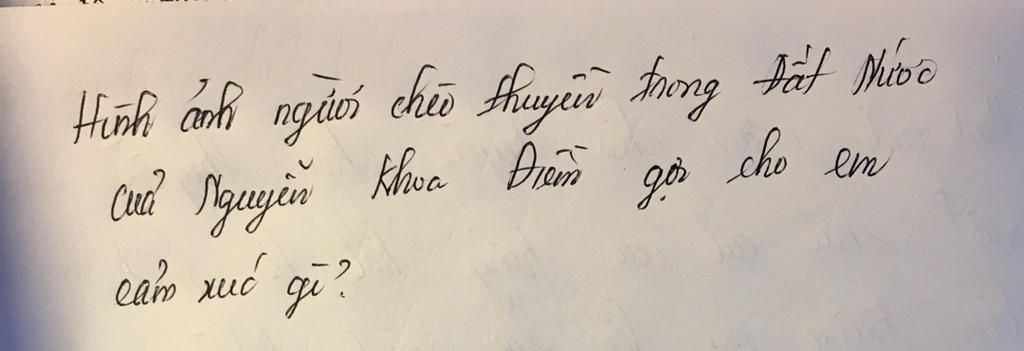 Hình ảnh người chèo thuyền trong Đất Nước
của Nguyễn Khoa Điềm gợi cho em
cảm xúc gì?